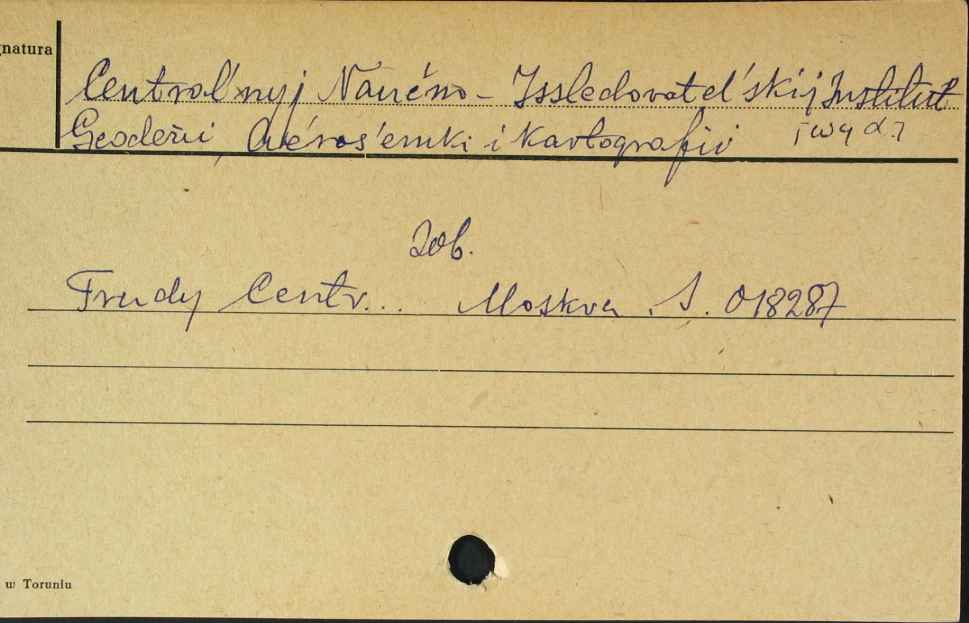 gnatura
Central'nyj Naučno-Issledovatel'skij Institut
Geodezii, Aéros'emki i Kartografii [wyd.]
zob.
Trudy Centr... Moskva. S. 018287
w Toruniu